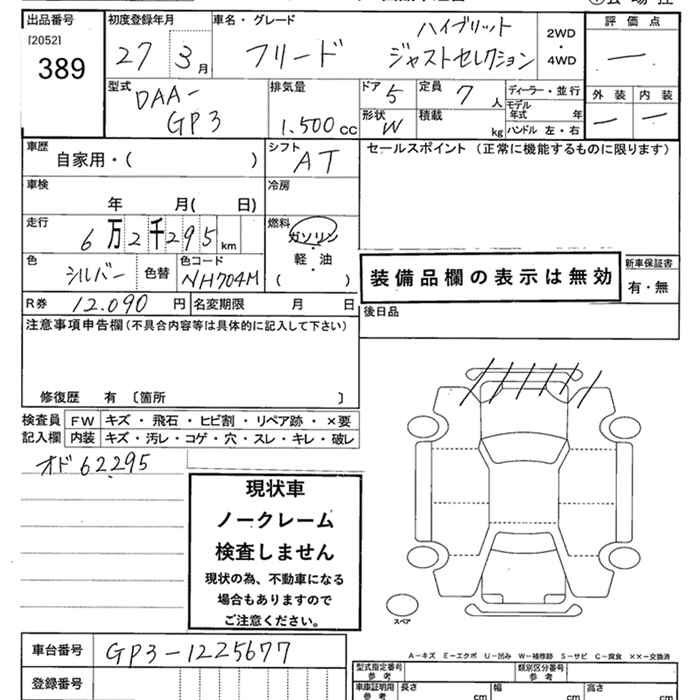 出品番号 初度登録年月 車名・グレード 評価点
[2052]
389
27 3月 フリード ハイブリット ジャストセレクション 2WD・4WD ー
型式 排気量 ドア 定員 ディーラー・並行 外装 内装
DAA-GP3 1.500cc 5 7人 モデル年式 年 ー ー
形状 W 積載 kg ハンドル 左・右
車歴 自家用・( ) シフト AT セールスポイント(正常に機能するものに限ります)
車検 年 月( 日) 冷房
走行 6万2千295km 燃料 ガソリン・軽油・( )
色 シルバー 色替 色コード NH704M
装備品欄の表示は無効 新車保証書 有・無
R券 12.090円 名変期限 月 日 後日品
注意事項申告欄(不具合内容等は具体的に記入して下さい)
修復歴 有〔箇所 〕
検査員記入欄 FW キズ・飛石・ヒビ割・リペア跡・×要
内装 キズ・汚レ・コゲ・穴・スレ・キレ・破レ
オド62295
現状車
ノークレーム
検査しません
現状の為、不動車になる
場合もありますので
ご注意ください。
スペア
A-キズ E-エクボ U-凹み W-補修跡 S-サビ C-腐食 ××-交換済
車台番号 GP3-1225677
登録番号
型式指定番号 参考 類別区分番号 参考
車庫証明用 参考 長さ cm 幅 cm 高さ cm